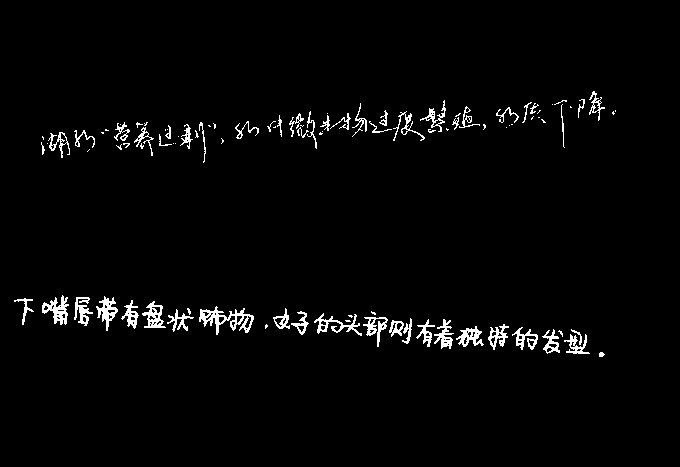 湖水“营养过剩”,水中微生物过度繁殖,水质下降。
下嘴唇带有盘状饰物,女子的头部则有着独特的发型。